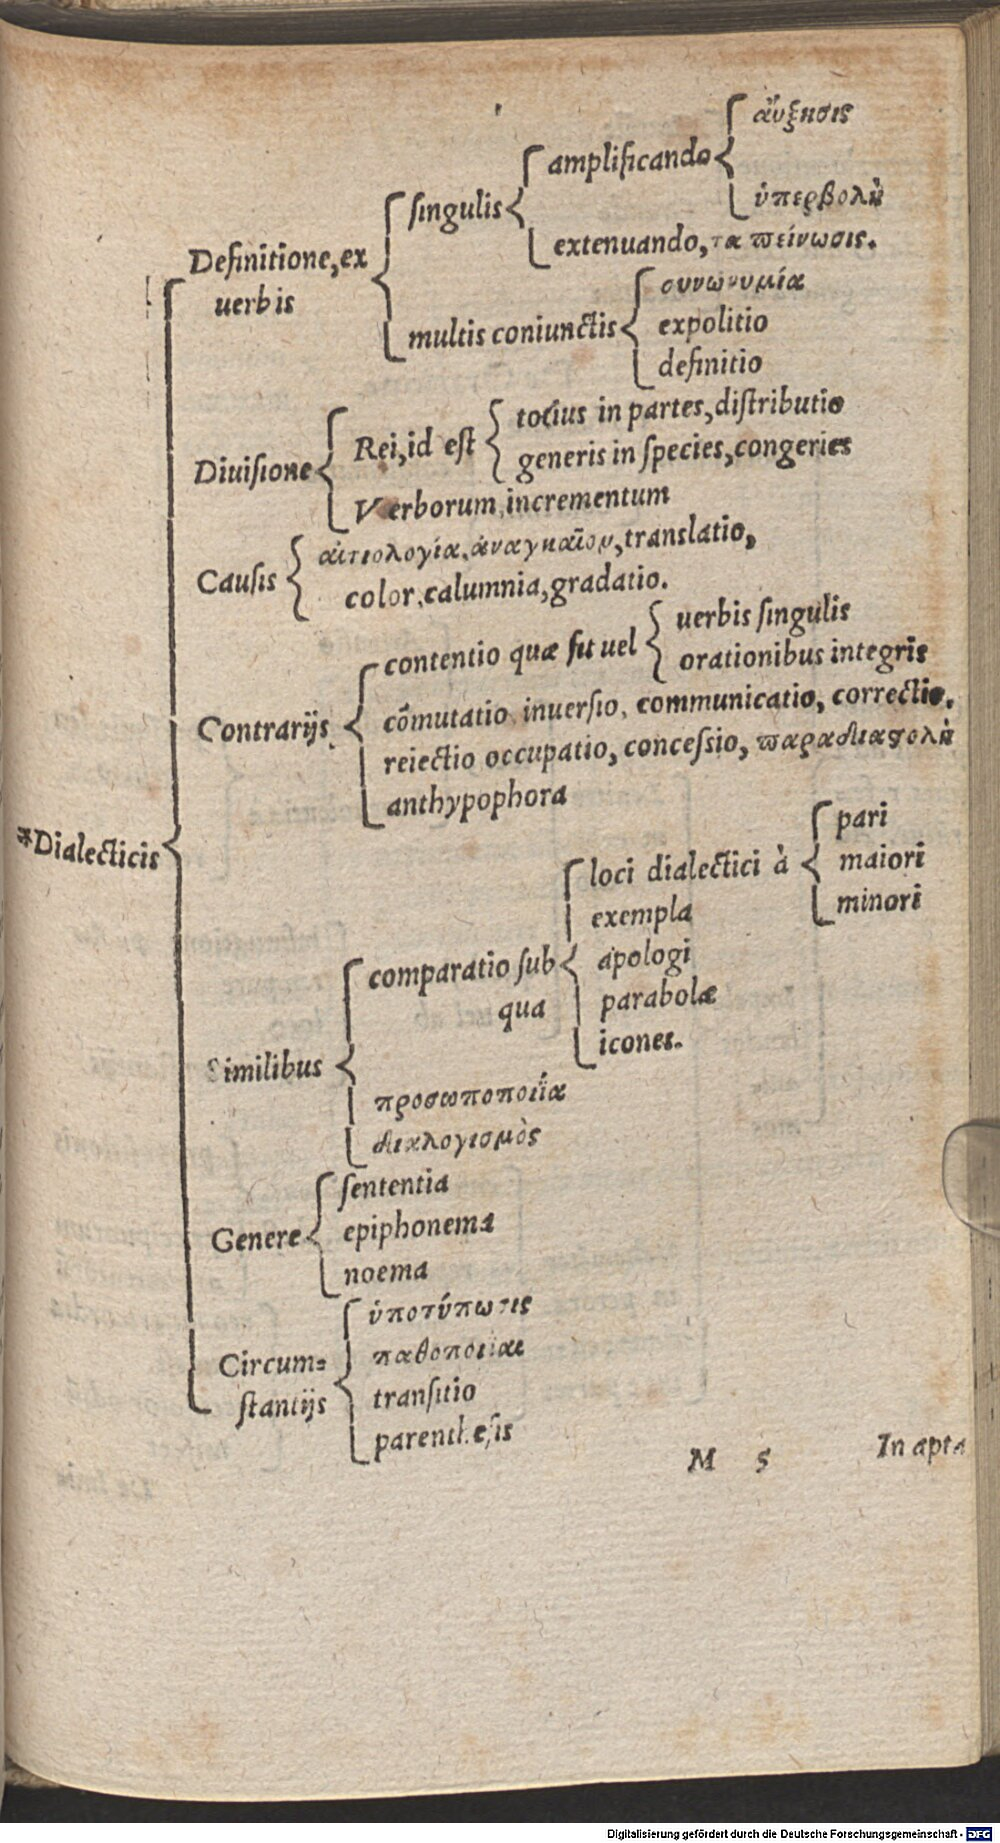 αὔξησις
amplificando
ὑπερβολὴ
ſingulis
extenuando, ταπείνωσις.
Definitione, ex
uerbis
συνωνυμία
multis coniunctis
expolitio
definitio
totius in partes, diſtributio
Rei, id eſt
generis in ſpecies, congeries
Diuiſione
Verborum, incrementum
αἰτιολογία, ἀναγκαῖον, translatio,
Cauſis
color, calumnia, gradatio.
uerbis ſingulis
contentio quæ fit uel
orationibus integris
Contrarijs
cōmutatio, inuerſio, communicatio, correctio,
reiectio occupatio, conceſsio, παραδιαστολὴ
anthypophora
*Dialecticis
pari
loci dialectici à
maiori
minori
exempla
comparatio ſub
qua
apologi
parabolæ
icones.
Similibus
προσωποποιΐα
διαλογισμὸς
ſententia
Genere
epiphonema
noema
ὑποτύπωσις
Circum=
ſtantijs
παθοποιίαι
tranſitio
parentheſis
M 5
In apta
Digitalisierung gefördert durch die Deutsche Forschungsgemeinschaft - DFG